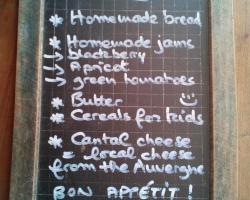 * Homemade bread
* Homemade jams
↳ blackberry
↳ Apricot
↳ green tomatoes
* Butter
* Cereals for kids
* Cantal cheese
= local cheese
from the Auvergne
BON APPÉTIT !